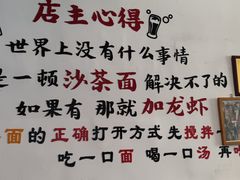 店主心得
世界上没有什么事情
是一顿沙茶面解决不了的
如果有 那就加龙虾
面的正确打开方式 先搅拌一
吃一口面 喝一口汤 再